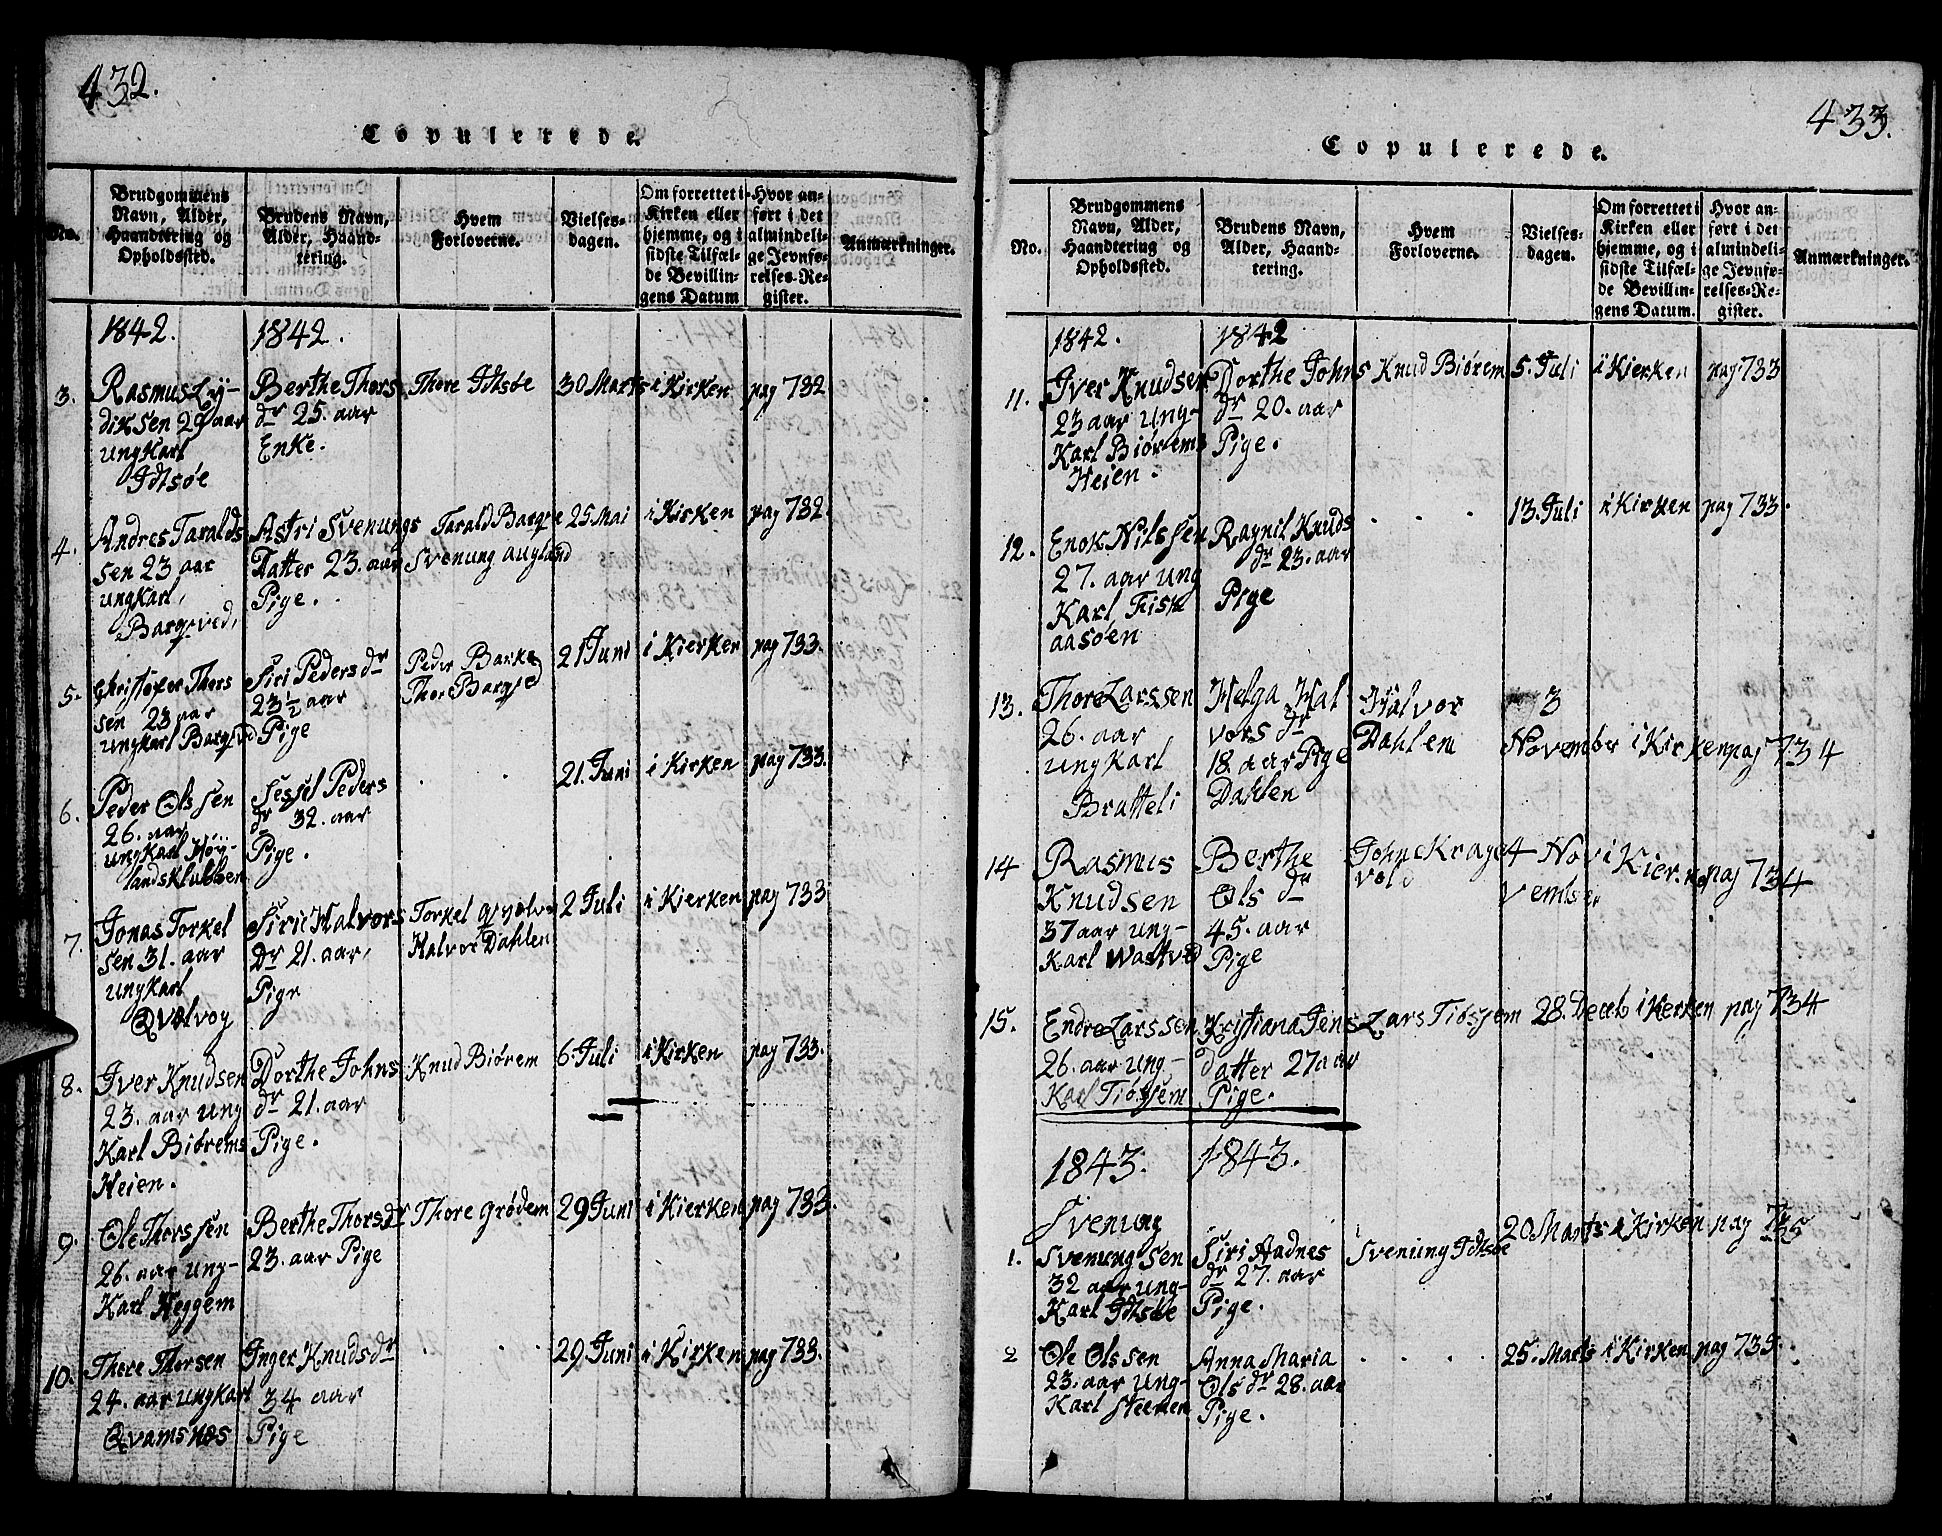 432.
Copulerede.
No.
Brudgommens
Navn, Alder,
Haandtering og
Opholdssted.
Brudens Navn,
Alder, Haand-
tering.
Hvem
Forloverne.
Vielses-
dagen.
Om forrettet i
Kirken eller
hjemme, og i
sidste Tilfæl-
de Bevillin-
gens Datum
Hvor an-
ført i det
almindeli-
ge Jevnfø-
relses-Re-
gister.
Anmærkninger.
1842.
1842.
3.
Rasmus Ly-
diksen 29 aar
ungKarl
Idtsøe
Berthe Thors
dr 25. aar
Enke.
Thore Idtsøe
30 Marts
i Kirken
pag 732
4.
Andres Taralds
sen 23 aar
ungKarl,
Barqved,
Astri Svenungs
Datter 23. aar
Pige.
Tarald Barqve
Svenung augland
25. Mai
i Kirken
pag 732.
5.
Christofer Thors
sen 23 aar
ungkarl Barqved
Siri Peders dr
23½ aar
Pige
Peder Barke
Thor Barqved
21 Juni
i Kierken
pag 733.
6.
Peder Olssen
26. aar
ungKarl Høy-
landsklubben
Sessel Peders
dr 32. aar
Pige.
. .
21. Juni
i Kirken
pag 733.
7.
Jonas Torkel
sen 31. aar
ungKarl
Qvalvog
Siri Halvors
Dr 21. aar,
Pige
Torkel Qvalv
Halvor Dahlen
2 Juli
i Kierken
pag 733
8.
Iver Knudsen
23. aar ung
Karl Biørems
Heien.
Dorthe Johns
dr 21. aar
Pige.
Knud Biørem
6. Juli
i Kirken
pag 733.
9.
Ole Thorssen
26. aar ung-
Karl Heggem
Berthe Thorsdr
23. aar Pige
Thore Grødem
29 Juni
i Kierken
pag 733.
10.
Thore Thorsen
24. aar ungKarl
Qvamsnæs
Inger Knudsdr
34 aar
Pige
. . .
29 Juni
i Kirken
pag 733.
433.
Copulerede.
No.
Brudgommens
Navn, Alder,
Haandtering og
Opholdssted.
Brudens Navn,
Alder, Haand-
tering.
Hvem
Forloverne.
Vielses-
dagen.
Om forrettet i
Kirken eller
hjemme, og i
sidste Tilfæl-
de Bevillin-
gens Datum.
Hvor an-
ført i det
almindeli-
ge Jevnfø-
relses-Re-
gister.
Anmærkninger.
1842.
1842
11.
Iver Knudsen
23 aar ung-
Karl Biørems
Heien.
Dorthe Johns
dr 20. aar
Pige.
Knud Biørem
5. Juli
i Kierken
pag. 733
12.
Enok Nilssen
27. aar ung
Karl, Fisk
aasøen
Ragnil Knuds
dr 23. aar
Pige
. . .
13. Juli
i Kirken
pag 733.
13.
Thore Larssen
26. aar
ungKarl
Bratteli
Helga Hal
vors dr
18. aar Pige
Dahlen
Halvor
Dahlem
3
November
i Kirken
pag 734
14
Rasmus
Knudsen
37 aar ung-
Karl Wastved
Berthe
Ols dr
45. aar
Pige
John Krage
vold
4 Nov
vember
i Kierken
pag 734
15.
Endre Larssen
26. aar ung-
Karl Tiøssem
Kristiana Jens
datter 27 aar
Pige.
Lars Tiøssem
28. Deceb
i Kerken
pag 734
1843.
1843.
1.
Svenung
Svenungsen
32 aar ung-
Karl Idtsøe
Siri Aadnes
dr 27. aar
Pige.
Svenung Idtsøe
20 Marts
i Kirken
pag 735
2
Ole Olssen
23. aar ung-
Karl Steenen
Anna Maria
Ols dr 28. aar
Pige.
. . . .
25. Marts
i Kirken
pag 735.